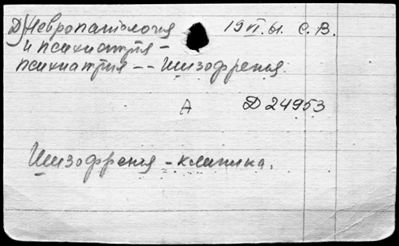 Д) Невропатология 19 VI.61. С.В.
и психиатрия -
психиатрия -- Шизофрения.
А Д 24953
Шизофрения - клиника.